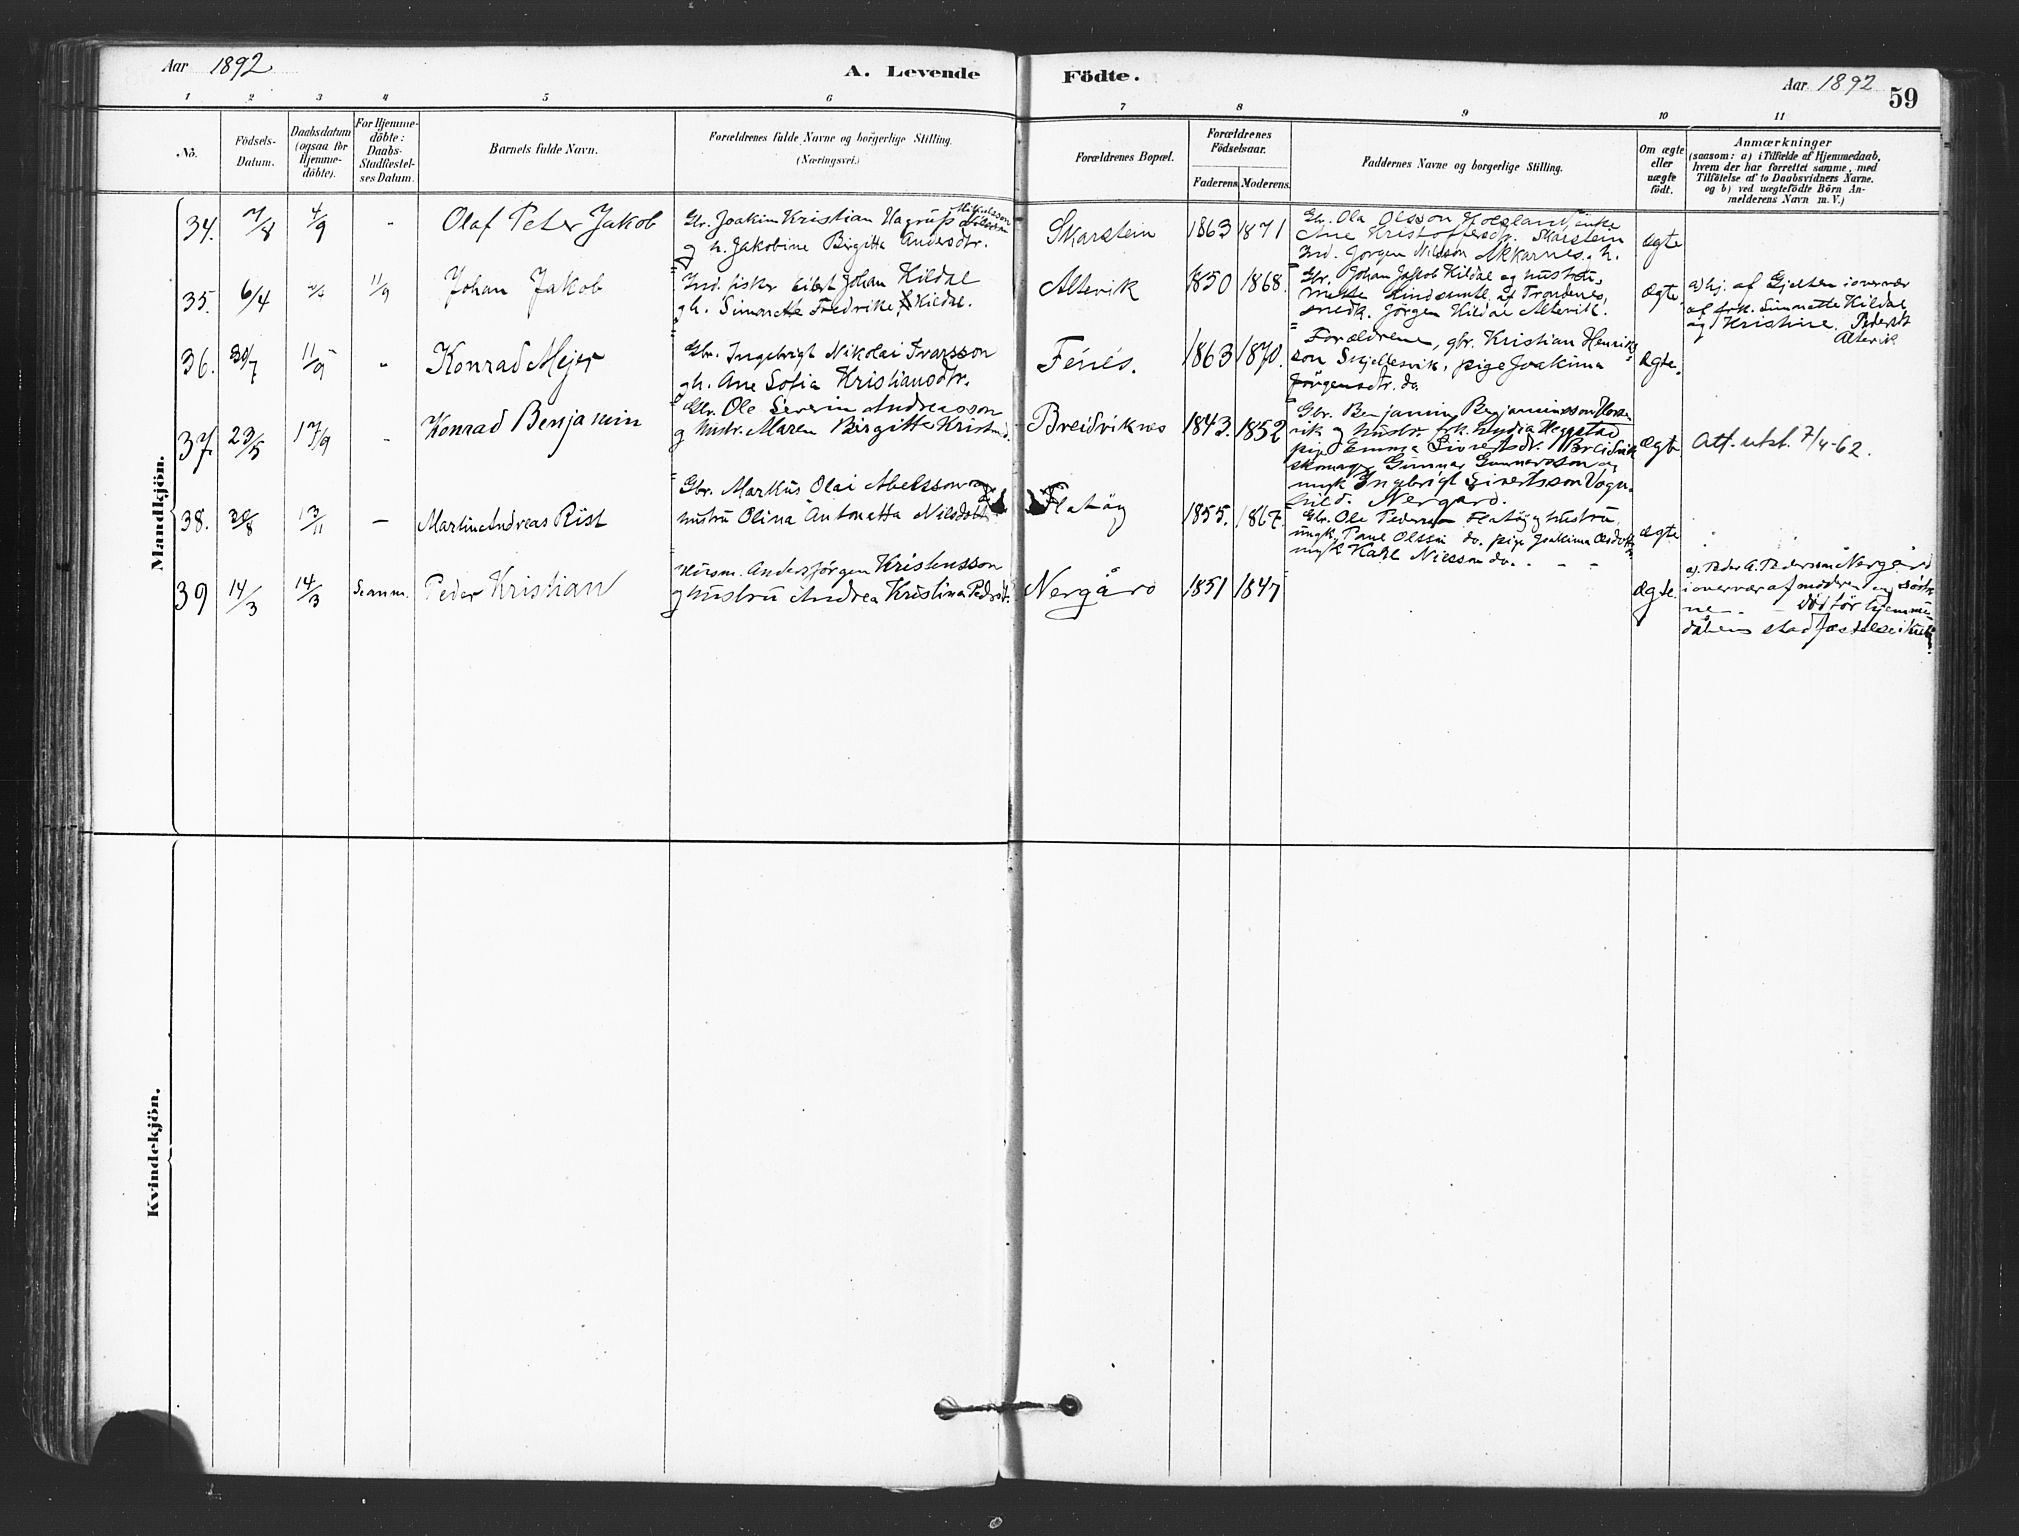 Aar 1892
A. Levende Födte.
Aar 1892
59
1 2 3 4 5 6 7 8 9 10 11
No.
Födsels-
Datum.
Daabsdatum
(ogsaa for
Hjemme-
döbte).
For Hjemme-
döbte:
Daabs-
Stadfæstel-
ses Datum.
Barnets fulde Navn.
Forældrenes fulde Navne og borgerlige Stilling.
(Næringsvei.)
Forældrenes Bopæl.
Forældrenes
Födselsaar.
Faderens. Moderens.
Faddernes Navne og borgerlige Stilling.
Om ægte
eller
uægte
födt.
Anmærkninger
(saasom: a) i Tilfælde af Hjemmedaab,
hvem der har forrettet samme, med
Tilföielse af to Daabsvidners Navne.
og b) ved uægtefödte Börn An-
melderens Navn m. V.)
Mandkjön.
34. 7/8 4/9 - Olaf Peter Jakob
Gbr. Joakim Kristian Hagrup
og h. Jakobine Birgitte Andersdtr.
Skarstein 1863 1871
Gbr. Ola Olsson enke
Ane Kristoffersdtr. Skarstein
Ind. Jørgen Nilsson Akkarnes. h.
ægte
35. 6/4 11/9 Johan Jakob
Ind. fisker Johan Kildal
gh. Simonette Fredrike Kildal.
Altevik 1850 1868.
Gbr. Johan Jakob Kildal og hustru
Mette af Trondenes,
snedk. Jørgen Kildal Altevik.
ægte.
a) hj. af Gjelsen i overvær
af frk. Simonette Kildal
og Kristine Pedersdt
Altevik
36. 30/7 11/9 - Konrad Mejer
Gbr. Ingebrigt Nikolai Ivarsson
gh. Ane Sofia Kristiansdtr.
Fenes. 1863 1870.
Forældrene, gbr. Kristian Henrik-
son Skjellesvik, pige Joakima
Jørgensdtr. do
ægte.
37. 23/5 17/9 - Konrad Benjamin
Gbr. Ole Severin Andreasson
og hustr. Maren Birgitte Kristind.
Breidviknes 1843. 1852
Gbr. Benjamin Benjaminsson
vik og hustr. frk. Lydia Heggstad
pige Emma Sivertsdtr. Breidvik
skomag. Gunnar Gunnarsson og
ungk Ingebrigt Sivertsson Vogn-
hild. Nergård.
ægte
Att. utst. 7/4-62.
38. 30/8 13/11 - Martin Andreas Rist
Gbr. Markus Olai Abelsson og
hustru Olina Antonatta Nilsdott
Flatøy 1855. 1867.
Gbr. Ole Pederson Flatøy og hustru,
ungk. Paul Olssen do. pige Joakima Olsdott
ungk Karl Nilsson do. - -
ægte
39 14/3 14/3 Peder Kristian
Husm. Anders Jørgen Kristensson
og hustru Andrea Kristina Pedersdt.
Nergård 1851 1847
ægte.
a). Peder A. Pederssen Nergård
i overvær af moderen og
ne. - Død før hjemme-
dåbens stadfæstelse i kirk.
Kvindekjön.